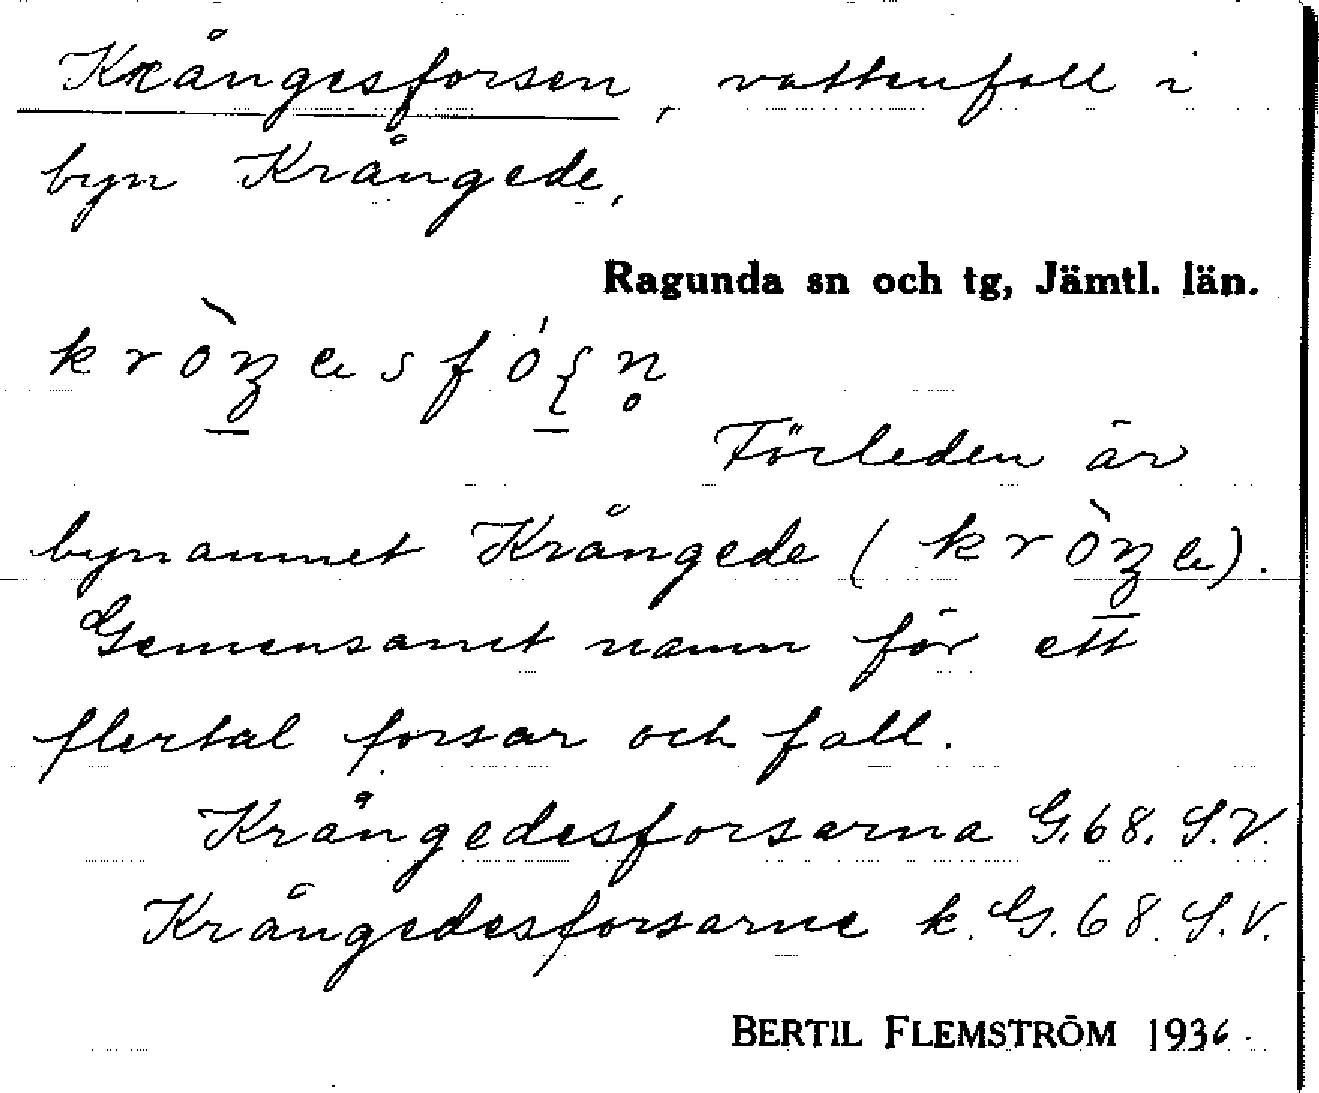 Krångesforsen, vattenfall i
byn Krångede,
Ragunda sn och tg, Jämtl. län.
Förleden är
bynamnet Krångede
Gemensamt namn för ett
flertal forsar och fall.
Krångedesforsarna G.68. S.V.
Krångedesforsarne k. G. 68. S.V.
BERTIL FLEMSTRÖM 1936